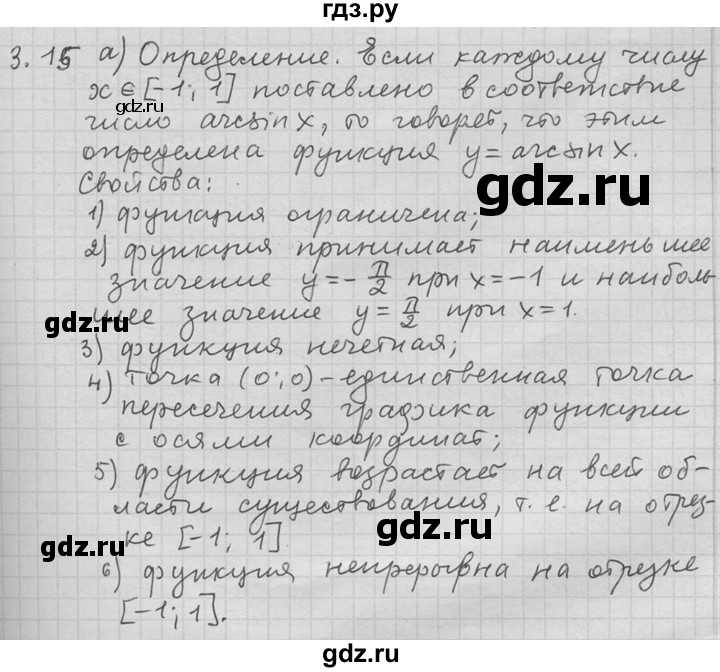 гдз.ру
3.15 а) Определение. Если каждому числу
x ∈ [-1; 1] поставлено в соответствие
gdz.ru
gdz.ru
число arcsin x, то говорят, что этим
определена функция y = arcsin x.
Свойства:
gdz.ru
1) функция ограничена;
2) функция принимает наименьшее
значение y = -π/2 при x = -1 и наиболь
gdz.ru
шее значение y = π/2 при x = 1.
gdz.ru
3) функция нечетная;
4) точка (0; 0) - единственная точка
пересечения графика функции
с осями координат;
5) функция возрастает на всей об-
ласти существования, т. е. на отрез-
gdz.ru
gdz.ru
ке [-1; 1]
6) функция непрерывна на отрезке
[-1; 1].
gdz.ru
gdz.ru